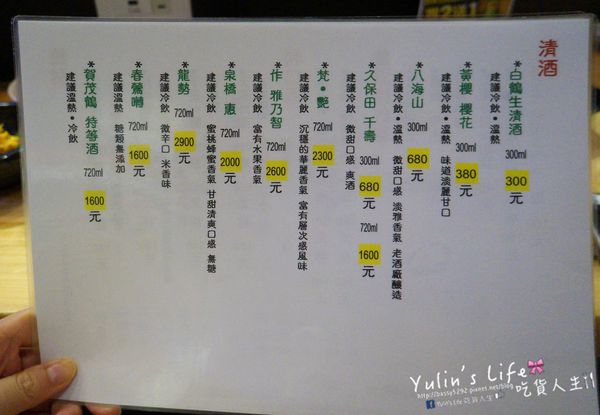 清酒
*白鶴生清酒 300ml 300元
建議冷飲·溫熱
*黃櫻 櫻花 300ml 380元
建議冷飲·溫熱 味道淡麗甘口
*八海山 300ml 680元
建議冷飲·溫熱 微甜口感 淡雅香氣 老酒廠釀造
*久保田 千壽 300ml 680元 720ml 1600元
建議冷飲 微甜口感 爽酒
*梵·艷 720ml 2300元
建議冷飲 沉穩的華麗香氣 富有層次感風味
*作 雅乃智 720ml 2600元
建議冷飲 富有水果香氣
*泉橋 惠 720ml 2000元
建議冷飲 蜜桃蜂蜜香氣 甘甜清爽口感 無糖
*龍勢 720ml 2900元
建議冷飲 微辛口 米香味
*春鶯囀 720ml 1600元
建議溫熱 糖類無添加
*賀茂鶴 特等酒 720ml 1600元
建議溫熱·冷飲
Yulin's Life
吃貨人生!!
http://bassy5292.pixnet.net/blog
Yulin's Life 吃貨人生